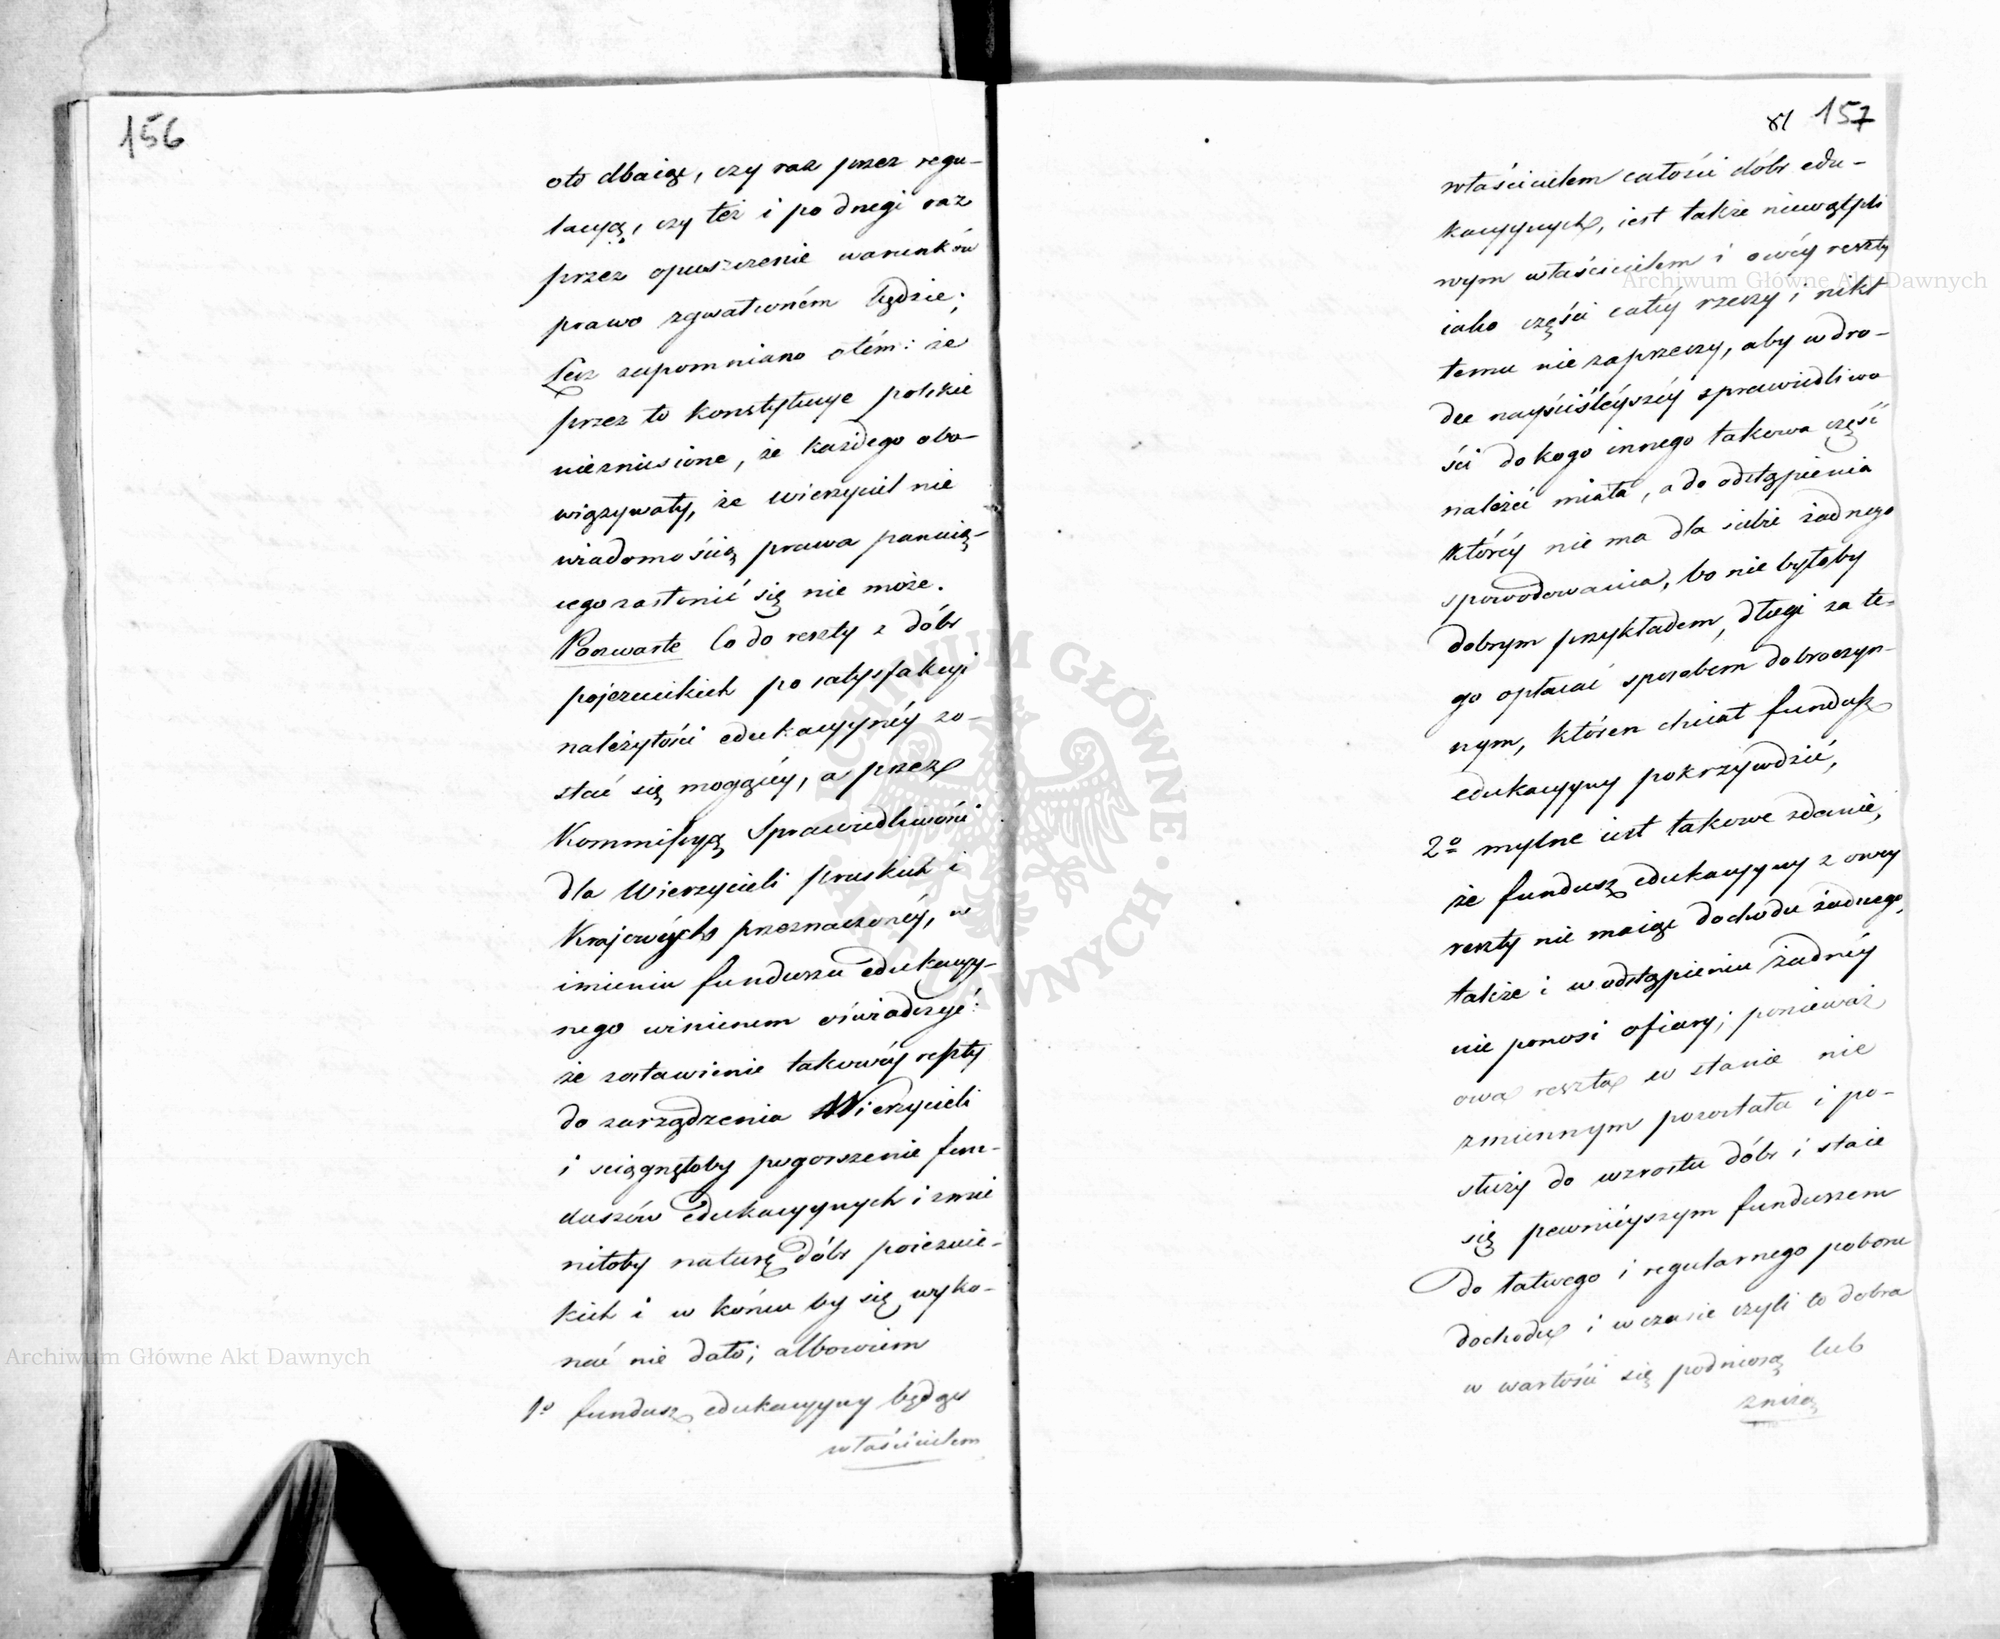 156
oto dbaiąc, czy raz przez regu-
lacyą, czy też i po drugi raz
przez opuszczenie warunków
prawo zgwałconém będzie;
Lecz zapomniano o tém: że
przez to konstytucye polskie
nie zniesione, że każdego obo-
wiązywały, że Wierzyciel nie
wiadomością prawa panuią-
cego zasłonić się nie może.
Poczwarte Co do reszty z dóbr
pojezuickich po satysfakcyi
należytości edukacyynéy zo-
stać się mogącéy, a przez
Kommissyą Sprawiedliwości
dla Wierzycieli pruskich i
Krajowych przeznaczonéy, w
imieniu funduszu edukacyy-
nego winienem oświadczyć:
że zostawienie takowéy reszty
do zarządzenia Wierzycieli
i ściągnęłoby pogorszenie fun-
duszów edukacyynych i zmie
niłoby naturę dóbr poiezuic-
kich i w końcu by się wyko-
nać nie dało; albowiem
1º fundusz edukacyyny będąc
właścicielem
81 157
właścicielem całości dóbr edu-
kacyynych, iest także niewątpli
wym właścicielem i owéy reszty
iako części całéy rzeczy i nikt
temu nie zaprzeczy, aby w dro-
dze nayściśléyszéy sprawiedliwo
ści do kogo innego takowa część
należéć miała, a do odstąpienia
któréy nie ma dla siebie żadnego
spowodowania, bo nie byłoby
dobrym przykładem, długi za te-
go opłacać sposobem dobroczyn-
nym, któren chciał fundusz
edukacyyny pokrzywdzić,
2º mylne iest takowe zdanie,
że fundusz edukacyyny z owey
reszty nie maiąc dochodu żadnego,
także i w odstąpieniu żadnéy
nie ponosi ofiary; ponieważ
owa reszta w stanie nie
zmiennym pozostała i po-
służy do wzrostu dóbr i staie
się pewniéyszym funduszem
do łatwego i regularnego poboru
dochodu i w czasie czyli to dobra
w wartości się podniosą lub
zniżą
Archiwum Główne Akt Dawnych
Archiwum Główne Akt Dawnych
ARCHIWUM GŁÓWNE AKT DAWNYCH